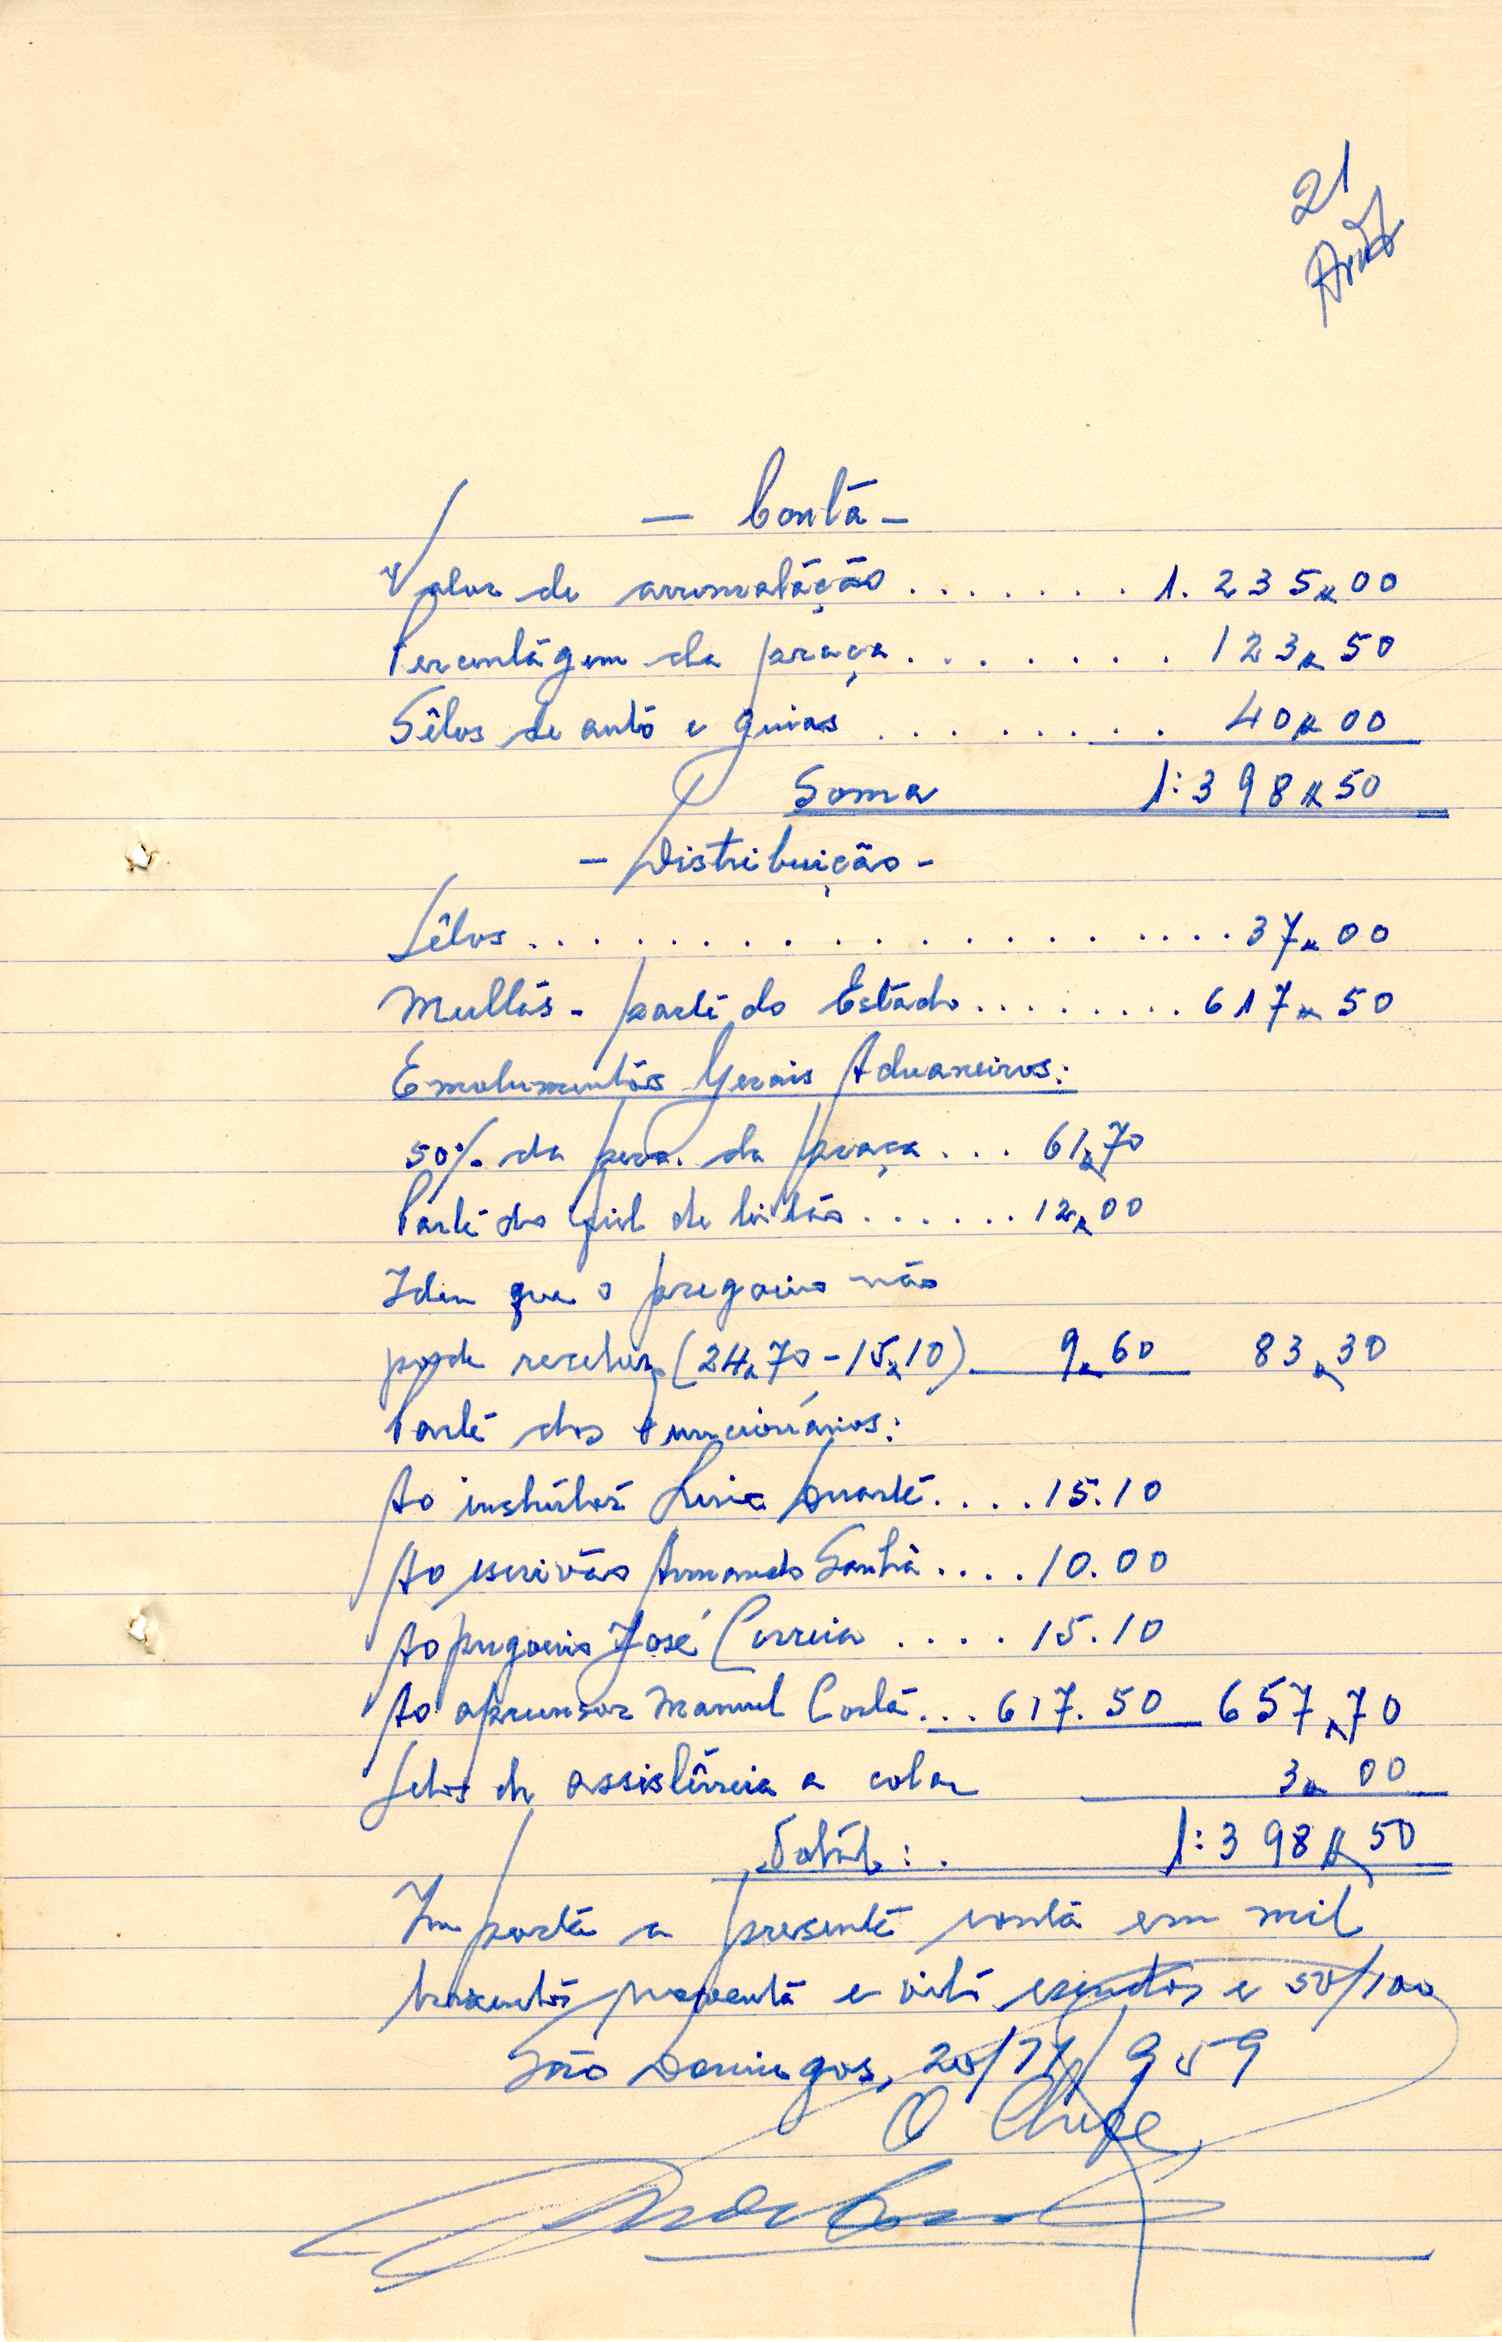 21
- Conta -
Valor de arrematação ....... 1.235$00
Percentagem da praça ....... 123$50
Sêlos de auto e guias ......... 40$00
Soma 1:398$50
- Distribuição -
Sêlos .................. 37$00
Multas - parte do Estado ......... 617$50
Emolumentos Gerais Aduaneiros:
50% da perc. da praça ... 61$70
Parte do fiel de leilão ...... 12$00
Idem que o pregoeiro não
pode receber (24$70 - 15$10) 9$60 83$30
Parte dos funcionários:
Ao instrutor Duarte .... 15.10
Ao escrivão Armando .... 10.00
Ao pregoeiro José Correia .... 15.10
Ao apreensor Manuel Costa ... 617.50 657$70
Selos de assistência a colar 3$00
Total: . 1:398$50
Importa a presente conta em mil
trezentos noventa e oito escudos e 50/100
São Domingos, 20/11/959
O Chefe